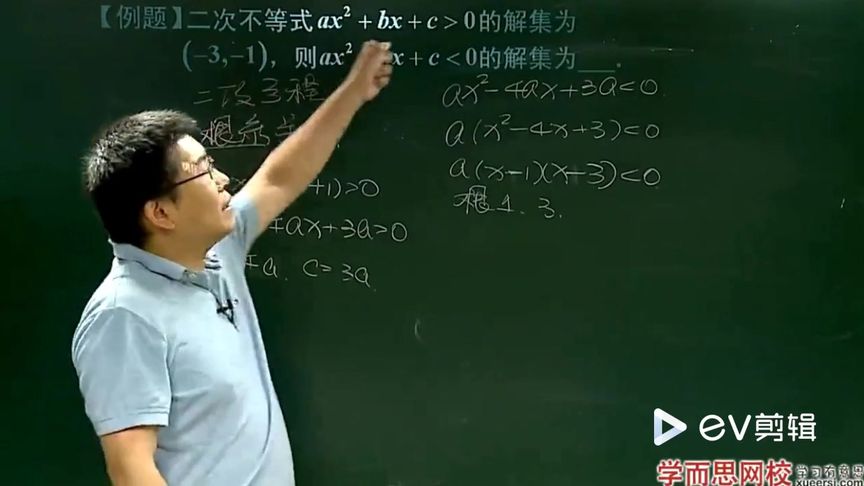 【例题】二次不等式ax²+bx+c>0的解集为
(-3,-1)，则ax² x+c<0的解集为___.
二次方程
根
+1)>0
ax+3a=0
a. c=3a.
ax²-4ax+3a<0.
a(x²-4x+3)<0
a(x-1)(x-3)<0
根1、3.
ev剪辑
学而思网校
学习有意思
xueersi.com